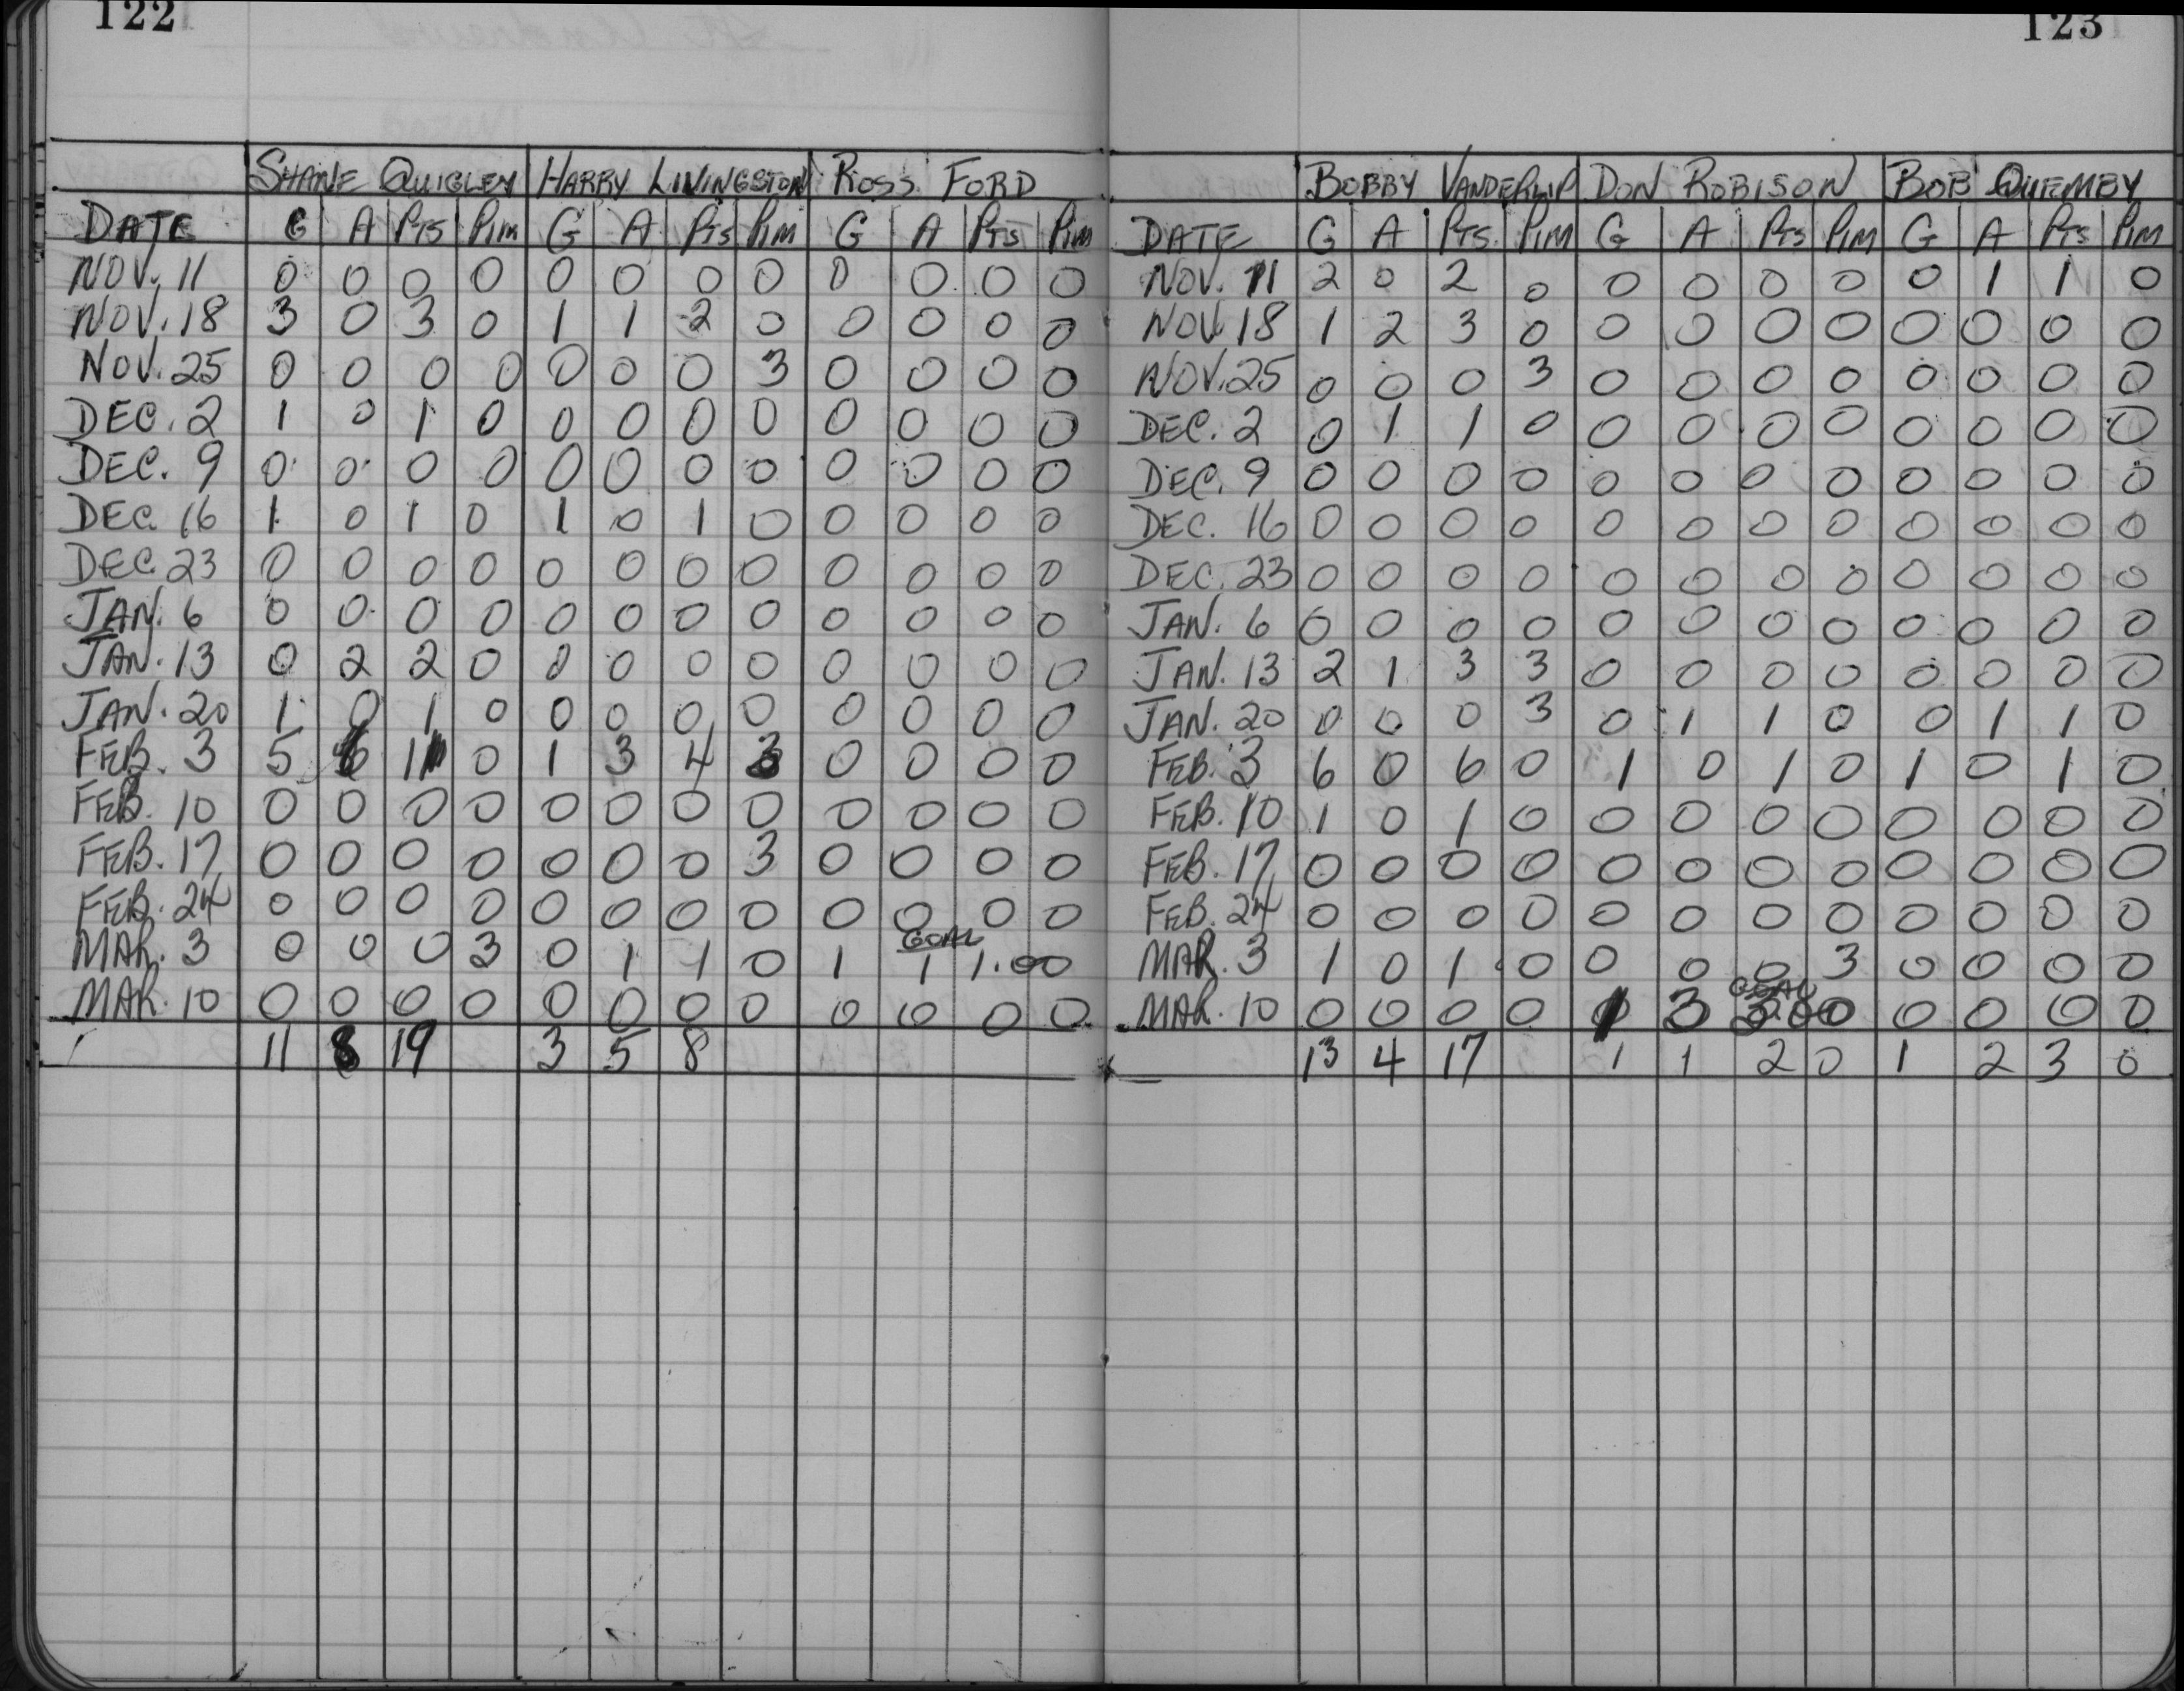 122
SHANE QUIGLEY HARRY LIVINGSTON ROSS FORD
DATE G A PTS PIM G A PTS PIM G A PTS PIM
NOV. 11 0 0 0 0 0 0 0 0 0 0 0 0
NOV. 18 3 0 3 0 1 1 2 0 0 0 0 0
NOV. 25 0 0 0 0 0 0 0 3 0 0 0 0
DEC. 2 1 0 1 0 0 0 0 0 0 0 0 0
DEC. 9 0 0 0 0 0 0 0 0 0 0 0 0
DEC. 16 1 0 1 0 1 0 1 0 0 0 0 0
DEC. 23 0 0 0 0 0 0 0 0 0 0 0 0
JAN. 6 0 0 0 0 0 0 0 0 0 0 0 0
JAN. 13 0 2 2 0 0 0 0 0 0 0 0 0
JAN. 20 1 0 1 0 0 0 0 0 0 0 0 0
FEB. 3 5 6 11 0 1 3 4 3 0 0 0 0
FEB. 10 0 0 0 0 0 0 0 0 0 0 0 0
FEB. 17 0 0 0 0 0 0 0 3 0 0 0 0
FEB. 24 0 0 0 0 0 0 0 0 0 0 0 0
GOAL
MAR. 3 0 0 0 3 0 1 1 0 1 1 1.00
MAR. 10 0 0 0 0 0 0 0 0 0 0 0 0
11 8 19 3 5 8
123
BOBBY VANDERLIP DON ROBISON BOB QUEMBY
DATE G A PTS. PIM G A PTS PIM G A PTS PIM
NOV. 11 2 0 2 0 0 0 0 0 0 1 1 0
NOV. 18 1 2 3 0 0 0 0 0 0 0 0 0
NOV. 25 0 0 0 3 0 0 0 0 0 0 0 0
DEC. 2 0 1 1 0 0 0 0 0 0 0 0 0
DEC. 9 0 0 0 0 0 0 0 0 0 0 0 0
DEC. 16 0 0 0 0 0 0 0 0 0 0 0 0
DEC. 23 0 0 0 0 0 0 0 0 0 0 0 0
JAN. 6 0 0 0 0 0 0 0 0 0 0 0 0
JAN. 13 2 1 3 3 0 0 0 0 0 0 0 0
JAN. 20 0 0 0 3 0 1 1 0 0 1 1 0
FEB. 3 6 0 6 0 1 0 1 0 1 0 1 0
FEB. 10 1 0 1 0 0 0 0 0 0 0 0 0
FEB. 17 0 0 0 0 0 0 0 0 0 0 0 0
FEB. 24 0 0 0 0 0 0 0 0 0 0 0 0
MAR. 3 1 0 1 0 0 0 0 3 0 0 0 0
GOAL
MAR. 10 0 0 0 0 1 3 3.00 0 0 0 0
13 4 17 1 1 2 0 1 2 3 0